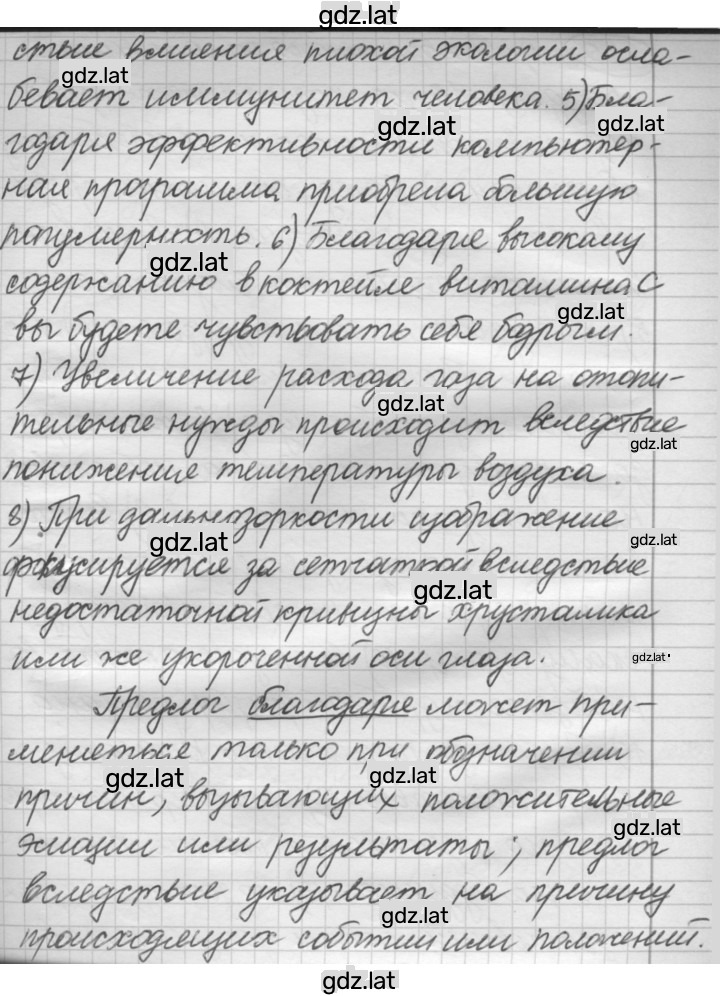 gdz.lat
ствие влияния плохой экологии осла-
gdz.lat
бевает иммунитет человека. 5) Бла-
gdz.lat gdz.lat
годаря эффективности компьютер-
ная программа приобрела большую
популярность. 6) Благодаря высокому
gdz.lat
содержанию в коктейле витамина С
gdz.lat
вы будете чувствовать себя бодрым.
7) Увеличение расхода газа на отопи-
gdz.lat
тельные нужды происходит вследствие
gdz.lat
понижения температуры воздуха.
8) При дальнозоркости изображение
gdz.lat gdz.lat
фокусируется за сетчаткой вследствие
gdz.lat
недостаточной кривизны хрусталика
или же укороченной оси глаза.
gdz.lat
Предлог благодаря может при-
меняться только при обозначении
gdz.lat gdz.lat
причин, вызывающих положительные
gdz.lat
эмоции или результаты; предлог
вследствие указывает на причину
gdz.lat
происходящих событий или положений.
gdz.lat